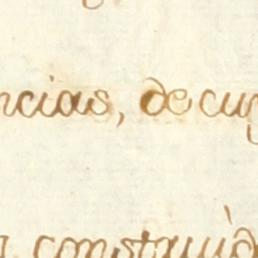 ncias, de cuy
construiò